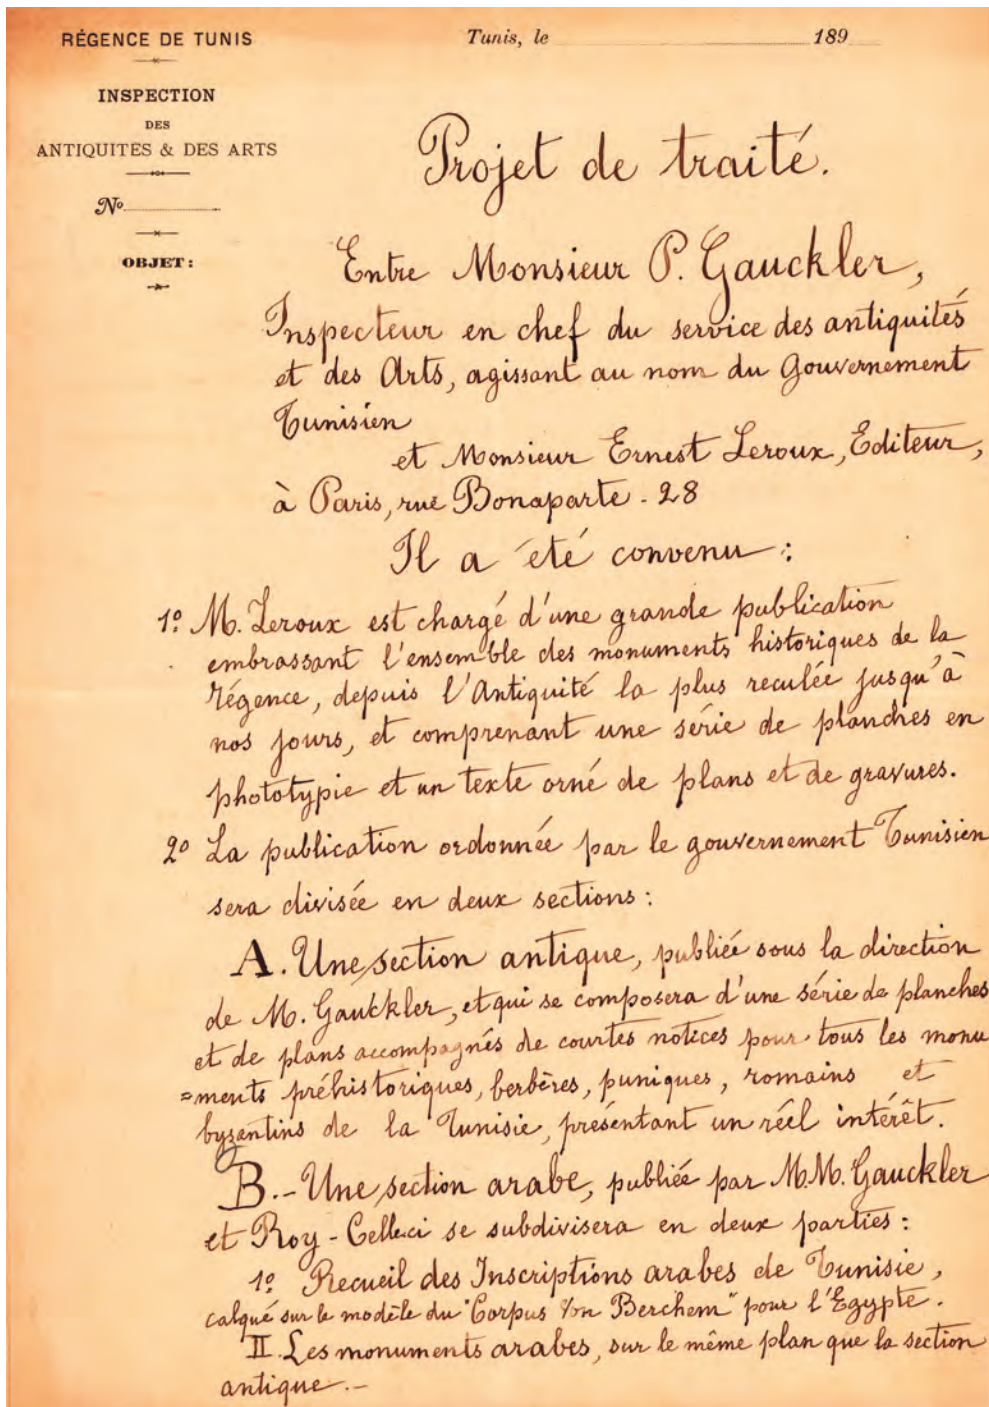 RÉGENCE DE TUNIS
Tunis, le 189
INSPECTION
DES
ANTIQUITES & DES ARTS
No
OBJET :
Projet de traité.
Entre Monsieur P. Gauckler,
Inspecteur en chef du service des antiquités
et des Arts, agissant au nom du Gouvernement
Tunisien
et Monsieur Ernest Leroux, Editeur,
à Paris, rue Bonaparte - 28
Il a été convenu :
1º M. Leroux est chargé d'une grande publication
embrassant l'ensemble des monuments historiques de la
régence, depuis l'Antiquité la plus reculée jusqu'à
nos jours, et comprenant une série de planches en
phototypie et un texte orné de plans et de gravures.
2º La publication ordonnée par le gouvernement Tunisien
sera divisée en deux sections :
A. Une section antique, publiée sous la direction
de M. Gauckler, et qui se composera d'une série de planches
et de plans accompagnés de courtes notices pour tous les monu
=ments préhistoriques, berbères, puniques, romains et
byzantins de la Tunisie, présentant un réel intérêt.
B. - Une section arabe, publiée par M.M. Gauckler
et Roy - Celle.ci se subdivisera en deux parties :
1º Recueil des Inscriptions arabes de Tunisie,
calqué sur le modèle du "Corpus Von Berchem" pour l'Egypte.
II. Les monuments arabes, sur le même plan que la section
antique. -